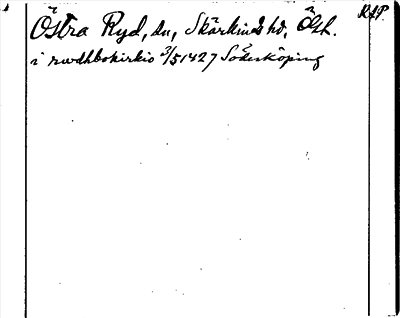 RAP.
Östra Ryd, sn, Skärkinds hd, Östl.
i rwdhbokirkio 3/5 1427 Söderköping